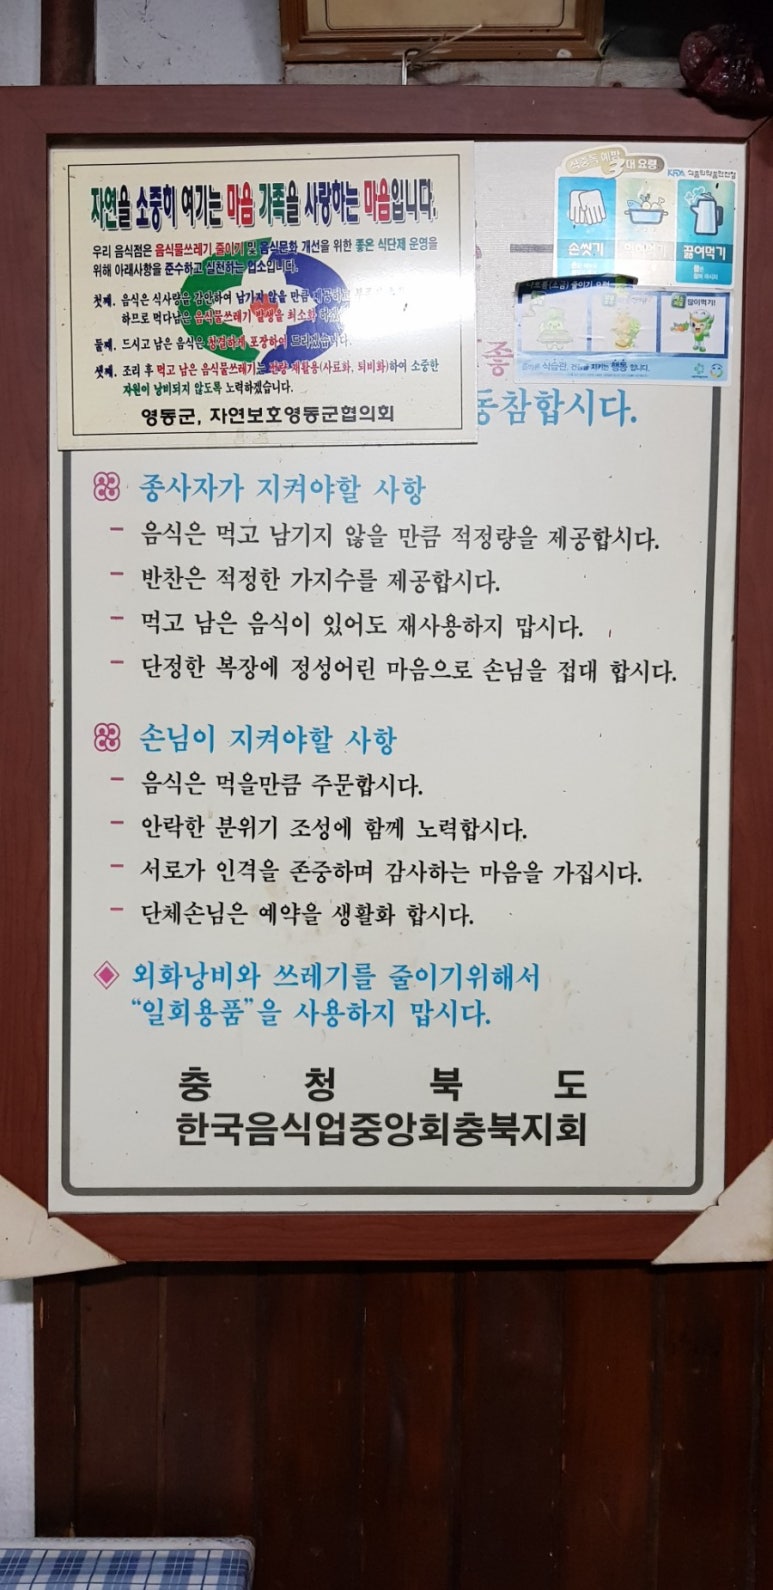 자연을 소중히 여기는 마음 가족을 사랑하는 마음입니다.
우리 음식점은 음식물쓰레기 줄이기 및 음식문화 개선을 위한 좋은 식단제 운영을
위해 아래사항을 준수하고 실천하는 업소입니다.
첫째. 음식은 식사량을 감안하여 남기지 않을 만큼
하므로 먹다남은 음식물쓰레기 발생을 최소화
둘째. 드시고 남은 음식은 청결하게 포장하여 드리겠습니다.
셋째. 조리 후 먹고 남은 음식물쓰레기는 전량 재활용(사료화, 퇴비화)하여 소중한
자원이 낭비되지 않도록 노력하겠습니다.
영동군, 자연보호영동군협의회
식중독 예방 대 요령
KFDA 식품의약품안전청
손씻기 익혀먹기 끓여먹기
줄이기
많이먹기!
식습관, 건강을 지키는 행동 입니다.
좋
동참합시다.
종사자가 지켜야할 사항
- 음식은 먹고 남기지 않을 만큼 적정량을 제공합시다.
- 반찬은 적정한 가지수를 제공합시다.
- 먹고 남은 음식이 있어도 재사용하지 맙시다.
- 단정한 복장에 정성어린 마음으로 손님을 접대 합시다.
손님이 지켜야할 사항
- 음식은 먹을만큼 주문합시다.
- 안락한 분위기 조성에 함께 노력합시다.
- 서로가 인격을 존중하며 감사하는 마음을 가집시다.
- 단체손님은 예약을 생활화 합시다.
외화낭비와 쓰레기를 줄이기위해서
"일회용품"을 사용하지 맙시다.
충 청 북 도
한국음식업중앙회충북지회